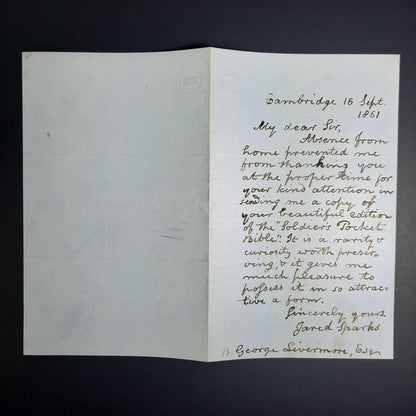 Cambridge 16 Sept.
1861
My dear Sir,
Absence from
home prevented me
from thanking you
at the proper time for
your kind attention in
sending me a copy of
your beautiful edition
of the "Soldier's Pocket
Bible". It is a rarity &
curiosity worth preser-
ving, & it gives me
much pleasure to
possess it in so attrac-
tive a form.
Sincerely yours.
Jared Sparks
George Livermore, Esqr